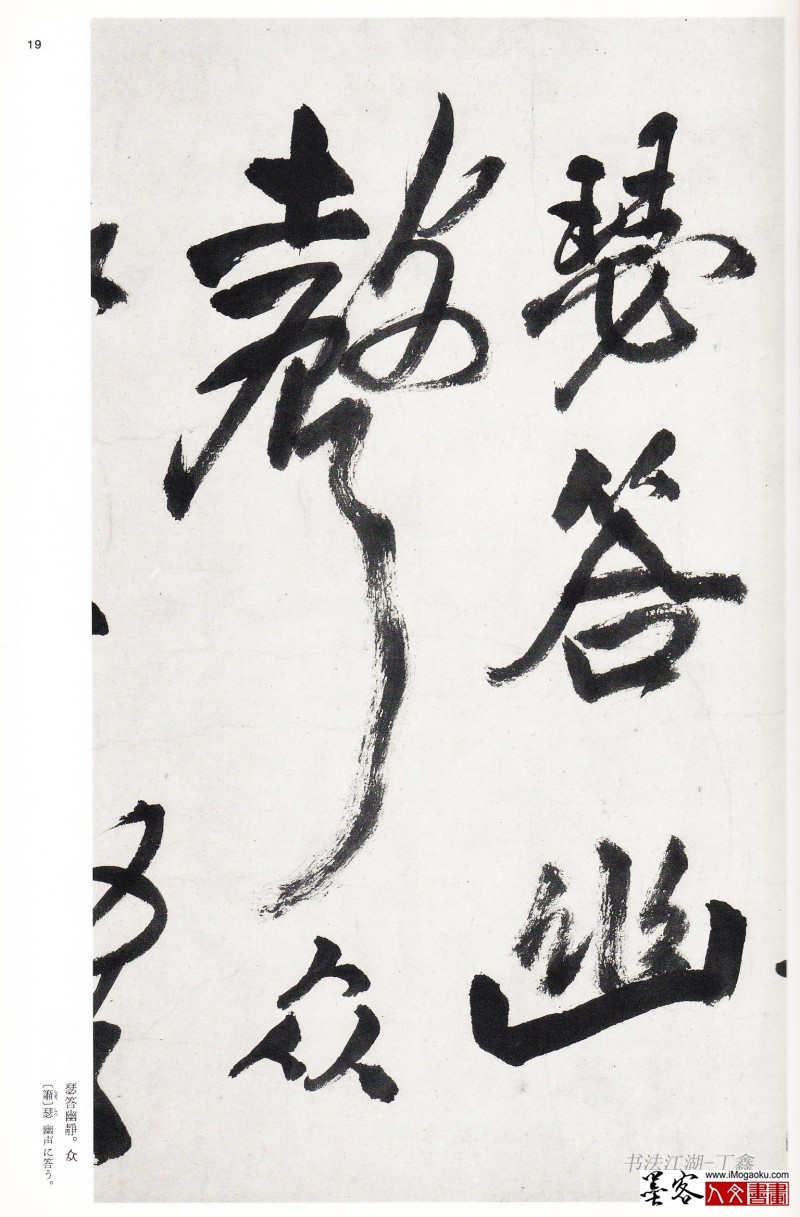 19
瑟答幽
聲众
瑟答幽靜。众
〔簫〕瑟 幽声に答う。
书法江湖-丁鑫
www.iMogaoku.com
墨客 人文書畫